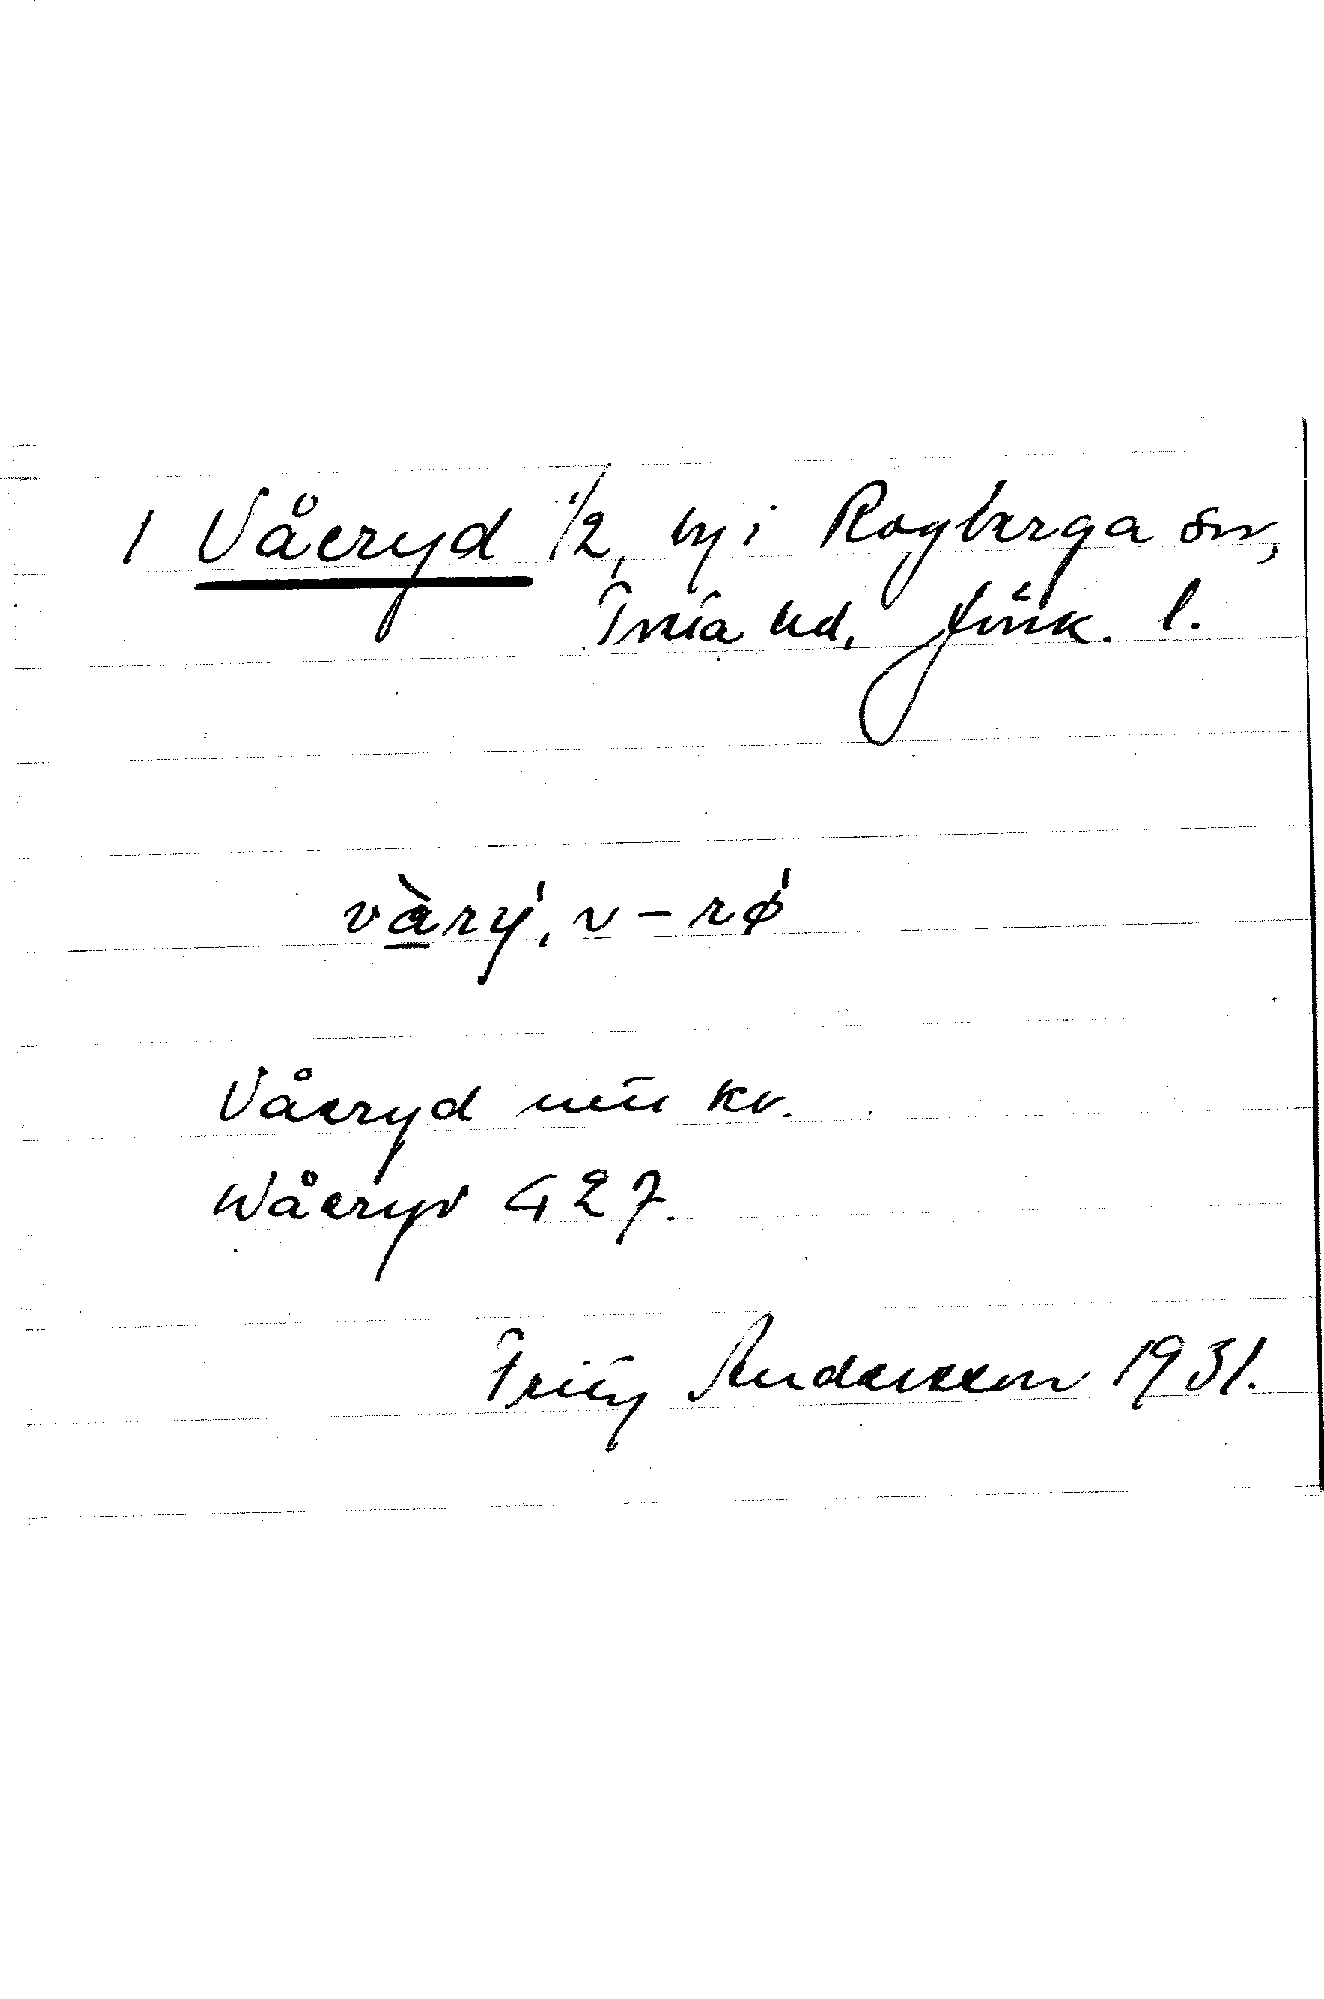 1 Våeryd 1/2, by i Rogberga sn,
Tveta hd, Jönk. l.
và̱rý, v–rǿ
Våeryd men kv.
Wåeryd G 27.
Fritz Andersson 1931.